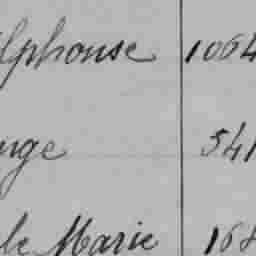 lphonse 1064
nge 541
le Marie 168